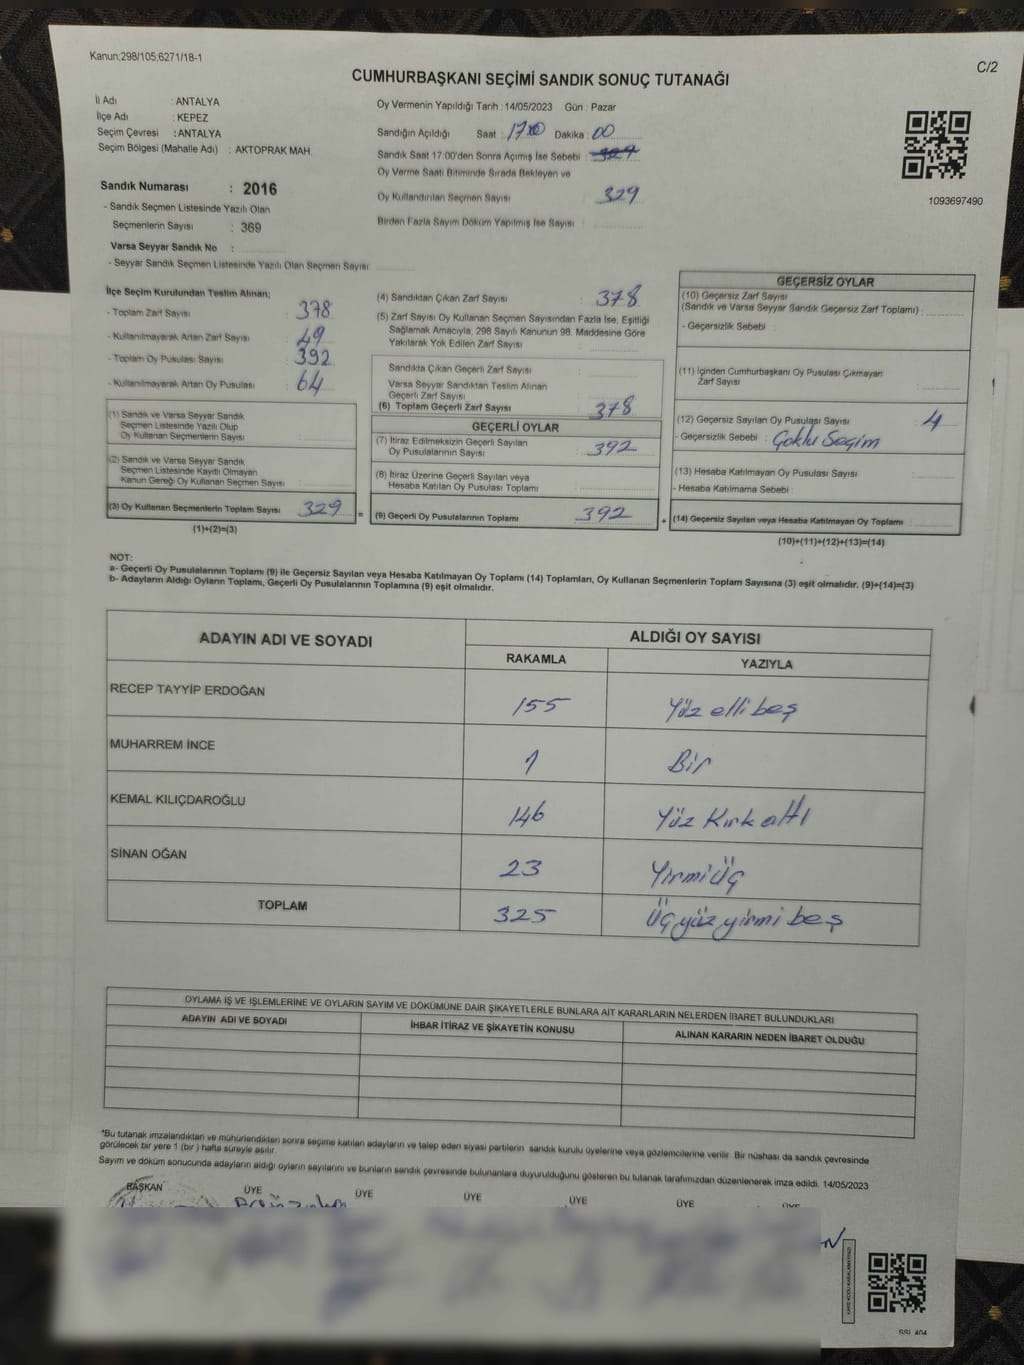 Kanun;298/105;6271/18-1
C/2
CUMHURBAŞKANI SEÇİMİ SANDIK SONUÇ TUTANAĞI
İl Adı : ANTALYA
İlçe Adı : KEPEZ
Seçim Çevresi : ANTALYA
Seçim Bölgesi (Mahalle Adı) : AKTOPRAK MAH.
Oy Vermenin Yapıldığı Tarih : 14/05/2023 Gün : Pazar
Sandığın Açıldığı Saat : Dakika : 00
Sandık Saat 17:00'den Sonra Açımış İse Sebebi : 329
Oy Verme Saati Bitiminde Sırada Bekleyen ve
Oy Kullandırılan Seçmen Sayısı 329
Birden Fazla Sayım Döküm Yapılmış İse Sayısı :
1093697490
Sandık Numarası : 2016
- Sandık Seçmen Listesinde Yazılı Olan
Seçmenlerin Sayısı : 369
Varsa Seyyar Sandık No :
- Seyyar Sandık Seçmen Listesinde Yazılı Olan Seçmen Sayısı :
İlçe Seçim Kurulundan Teslim Alınan;
- Toplam Zarf Sayısı : 378
- Kullanılmayarak Artan Zarf Sayısı : 49
- Toplam Oy Pusulası Sayısı : 392
- Kullanılmayarak Artan Oy Pusulası : 64
(1) Sandık ve Varsa Seyyar Sandık
Seçmen Listesinde Yazılı Olup
Oy Kullanan Seçmenlerin Sayısı :
(2) Sandık ve Varsa Seyyar Sandık
Seçmen Listesinde Kayıtlı Olmayan
Kanun Gereği Oy Kullanan Seçmen Sayısı :
(3) Oy Kullanan Seçmenlerin Toplam Sayısı 329 =
(1)+(2)=(3)
(4) Sandıktan Çıkan Zarf Sayısı : 378
(5) Zarf Sayısı Oy Kullanan Seçmen Sayısından Fazla İse, Eşitliği
Sağlamak Amacıyla, 298 Sayılı Kanunun 98. Maddesine Göre
Yakılarak Yok Edilen Zarf Sayısı :
Sandıkta Çıkan Geçerli Zarf Sayısı :
Varsa Seyyar Sandıktan Teslim Alınan
Geçerli Zarf Sayısı :
(6) Toplam Geçerli Zarf Sayısı 378
GEÇERLİ OYLAR
(7) İtiraz Edilmeksizin Geçerli Sayılan
Oy Pusulalarının Sayısı : 392
(8) İtiraz Üzerine Geçerli Sayılan veya
Hesaba Katılan Oy Pusulası Toplamı :
(9) Geçerli Oy Pusulalarının Toplamı 392 +
GEÇERSİZ OYLAR
(10) Geçersiz Zarf Sayısı
(Sandık ve Varsa Seyyar Sandık Geçersiz Zarf Toplamı) :
- Geçersizlik Sebebi :
(11) İçinden Cumhurbaşkanı Oy Pusulası Çıkmayan
Zarf Sayısı
(12) Geçersiz Sayılan Oy Pusulası Sayısı 4
- Geçersizlik Sebebi : Çoklu Seçim
(13) Hesaba Katılmayan Oy Pusulası Sayısı
- Hesaba Katılmama Sebebi :
(14) Geçersiz Sayılan veya Hesaba Katılmayan Oy Toplamı :
(10)+(11)+(12)+(13)=(14)
NOT:
a- Geçerli Oy Pusulalarının Toplamı (9) ile Geçersiz Sayılan veya Hesaba Katılmayan Oy Toplamı (14) Toplamları, Oy Kullanan Seçmenlerin Toplam Sayısına (3) eşit olmalıdır. (9)+(14)=(3)
b- Adayların Aldığı Oyların Toplamı, Geçerli Oy Pusulalarının Toplamına (9) eşit olmalıdır.
ADAYIN ADI VE SOYADI
ALDIĞI OY SAYISI
RAKAMLA YAZIYLA
RECEP TAYYİP ERDOĞAN 155 Yüz elli beş
MUHARREM İNCE 1 Bir
KEMAL KILIÇDAROĞLU 146 Yüz Kırk altı
SİNAN OĞAN 23 Yirmi üç
TOPLAM 325 Üç yüz yirmi beş
OYLAMA İŞ VE İŞLEMLERİNE VE OYLARIN SAYIM VE DÖKÜMÜNE DAİR ŞİKAYETLERLE BUNLARA AİT KARARLARIN NELERDEN İBARET BULUNDUKLARI
ADAYIN ADI VE SOYADI İHBAR İTİRAZ VE ŞİKAYETİN KONUSU ALINAN KARARIN NEDEN İBARET OLDUĞU
*Bu tutanak imzalandıktan ve mühürlendikten sonra seçime katılan adayların ve talep eden siyasi partilerin sandık kurulu üyelerine veya gözlemcilerine verilir. Bir nüshası da sandık çevresinde
görülecek bir yere 1 (bir) hafta süreyle asılır.
Sayım ve döküm sonucunda adayların aldığı oyların sayılarını ve bunların sandık çevresinde bulunanlara duyurulduğunu gösteren bu tutanak tarafımızdan düzenlenerek imza edildi. 14/05/2023
BAŞKAN ÜYE ÜYE ÜYE ÜYE ÜYE ÜYE